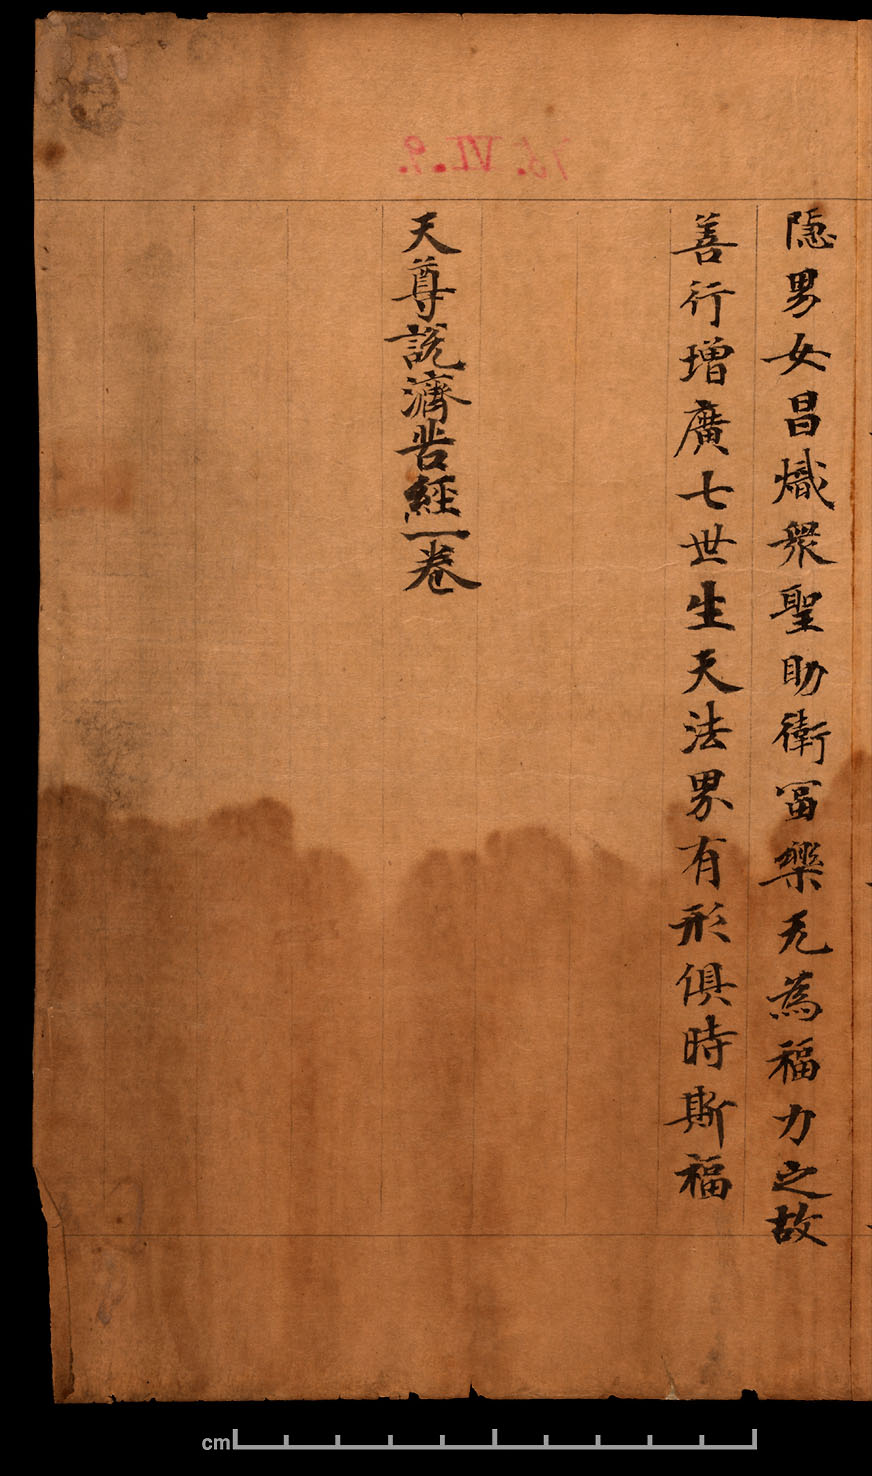 隱男女昌熾衆聖助衛冨樂无為福力之故
善行增廣七世生天法界有形俱時斯福
天尊說濟苦經一卷
75.VI.9.
cm